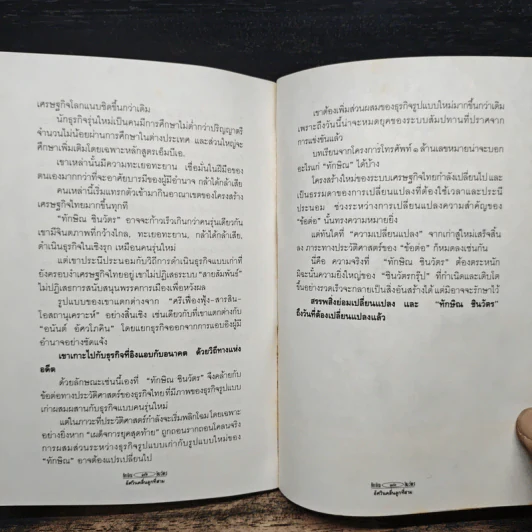 เศรษฐกิจโลกแนบชิดขึ้นกว่าเดิม
นักธุรกิจรุ่นใหม่เป็นคนมีการศึกษาไม่ต่ำกว่าปริญญาตรี
จำนวนไม่น้อยผ่านการศึกษาในต่างประเทศ และส่วนใหญ่จะ
ศึกษาเพิ่มเติมโดยเฉพาะหลักสูตรเอ็มบีเอ.
เขาเหล่านั้นมีความทะเยอทะยาน เชื่อมั่นในฝีมือของ
ตนเองมากกว่าที่จะอาศัยบารมีของผู้มีอำนาจ กล้าได้กล้าเสีย
คนเหล่านี้เริ่มแทรกตัวเข้ามากินอาณาเขตของโครงสร้าง
เศรษฐกิจไทยมากขึ้นทุกที
"ทักษิณ ชินวัตร" อาจจะก้าวเร็วเกินกว่าคนรุ่นเดียวกัน
เขามีจินตภาพที่กว้างไกล, ทะเยอทะยาน, กล้าได้กล้าเสีย,
ดำเนินธุรกิจในเชิงรุก เหมือนคนรุ่นใหม่
แต่เขาประนีประนอมกับวิถีการดำเนินธุรกิจแบบเก่าที่
ยังครอบงำเศรษฐกิจไทยอยู่ เขาไม่ปฏิเสธระบบ "สายสัมพันธ์"
ไม่ปฏิเสธการสนับสนุนพรรคการเมืองเพื่อหวังผล
รูปแบบของเขาแตกต่างจาก "ศรีเฟื่องฟุ้ง-สารสิน-
โอสถานุเคราะห์" อย่างสิ้นเชิง เช่นเดียวกับที่เขาแตกต่างกับ
"อนันต์ อัศวโภคิน" โดยแยกธุรกิจออกจากการแอบอิงผู้มี
อำนาจอย่างชัดแจ้ง
เขาเกาะไปกับธุรกิจที่อิงแอบกับอนาคต ด้วยวิถีทางแห่ง
อดีต
ด้วยลักษณะเช่นนี้เองที่ "ทักษิณ ชินวัตร" จึงคล้ายกับ
ข้อต่อทางประวัติศาสตร์ของธุรกิจไทยที่มีภาพของธุรกิจรูปแบบ
เก่าผสมผสานกับธุรกิจแบบคนรุ่นใหม่
แต่ในภาวะที่ประวัติศาสตร์กำลังจะเริ่มพลิกโฉม โดยเฉพาะ
อย่างยิ่งหาก "เผด็จการยุคสุดท้าย" ถูกถอนรากถอนโคลนจริง
การผสมส่วนระหว่างธุรกิจรูปแบบเก่ากับรูปแบบใหม่ของ
"ทักษิณ" อาจต้องแปรเปลี่ยนไป
อัศวินคลื่นลูกที่สาม
เขาต้องเพิ่มส่วนผสมของธุรกิจรูปแบบใหม่มากขึ้นกว่าเดิม
เพราะถึงวันนี้น่าจะหมดยุคของระบบสัมปทานที่ปราศจาก
การแข่งขันแล้ว
บทเรียนจากโครงการโทรศัพท์ ๓ ล้านเลขหมายน่าจะบอก
อะไรแก่ "ทักษิณ" ได้บ้าง
โครงสร้างใหม่ของระบบเศรษฐกิจไทยกำลังเปลี่ยนไป และ
เป็นธรรมดาของการเปลี่ยนแปลงที่ต้องใช้เวลาและประนี
ประนอม ช่วงระหว่างการเปลี่ยนแปลงความสำคัญของ
"ข้อต่อ" นั้นทรงความหมายยิ่ง
แต่ทันใดที่ "ความเปลี่ยนแปลง" จากเก่าสู่ใหม่เสร็จสิ้น
ลง ภาระทางประวัติศาสตร์ของ "ข้อต่อ" ก็หมดลงเช่นกัน
นี่คือ ความจริงที่ "ทักษิณ ชินวัตร" ต้องตระหนัก
มิฉะนั้นความยิ่งใหญ่ของ "ชินวัตรกรุ๊ป" ที่กำเนิดและเติบโต
ขึ้นอย่างรวดเร็วจะกลายเป็นสิ่งอันสร้างได้ แต่มิอาจจะรักษาไว้
สรรพสิ่งย่อมเปลี่ยนแปลง และ "ทักษิณ ชินวัตร"
ถึงวันที่ต้องเปลี่ยนแปลงแล้ว
อัศวินคลื่นลูกที่สาม